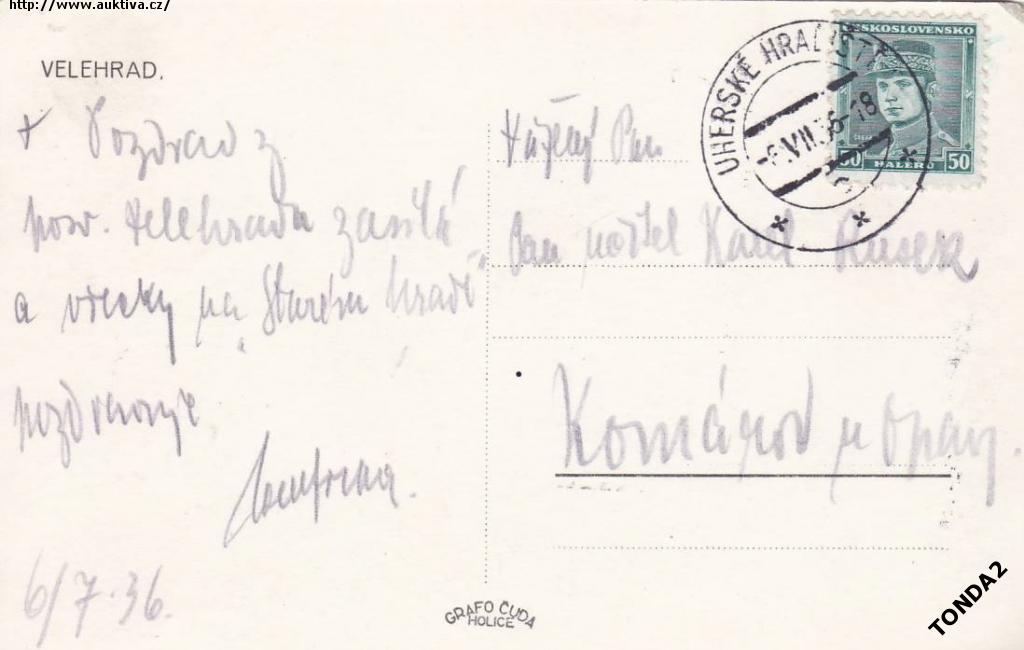 http://www.auktiva.cz/
VELEHRAD.
+ Pozdrav z
posv. Velehradu zasílá
a všecky na „Starém hradě"
pozdravuje
6/7.36.
Vážený Pan
Pan Karel
Komárov u Opavy.
UHERSKÉ HRADIŠTĚ
-6.VII.36-18
ČESKOSLOVENSKO
50 HALÉŘŮ 50
GRAFO ČUDA
HOLICE
TONDA2